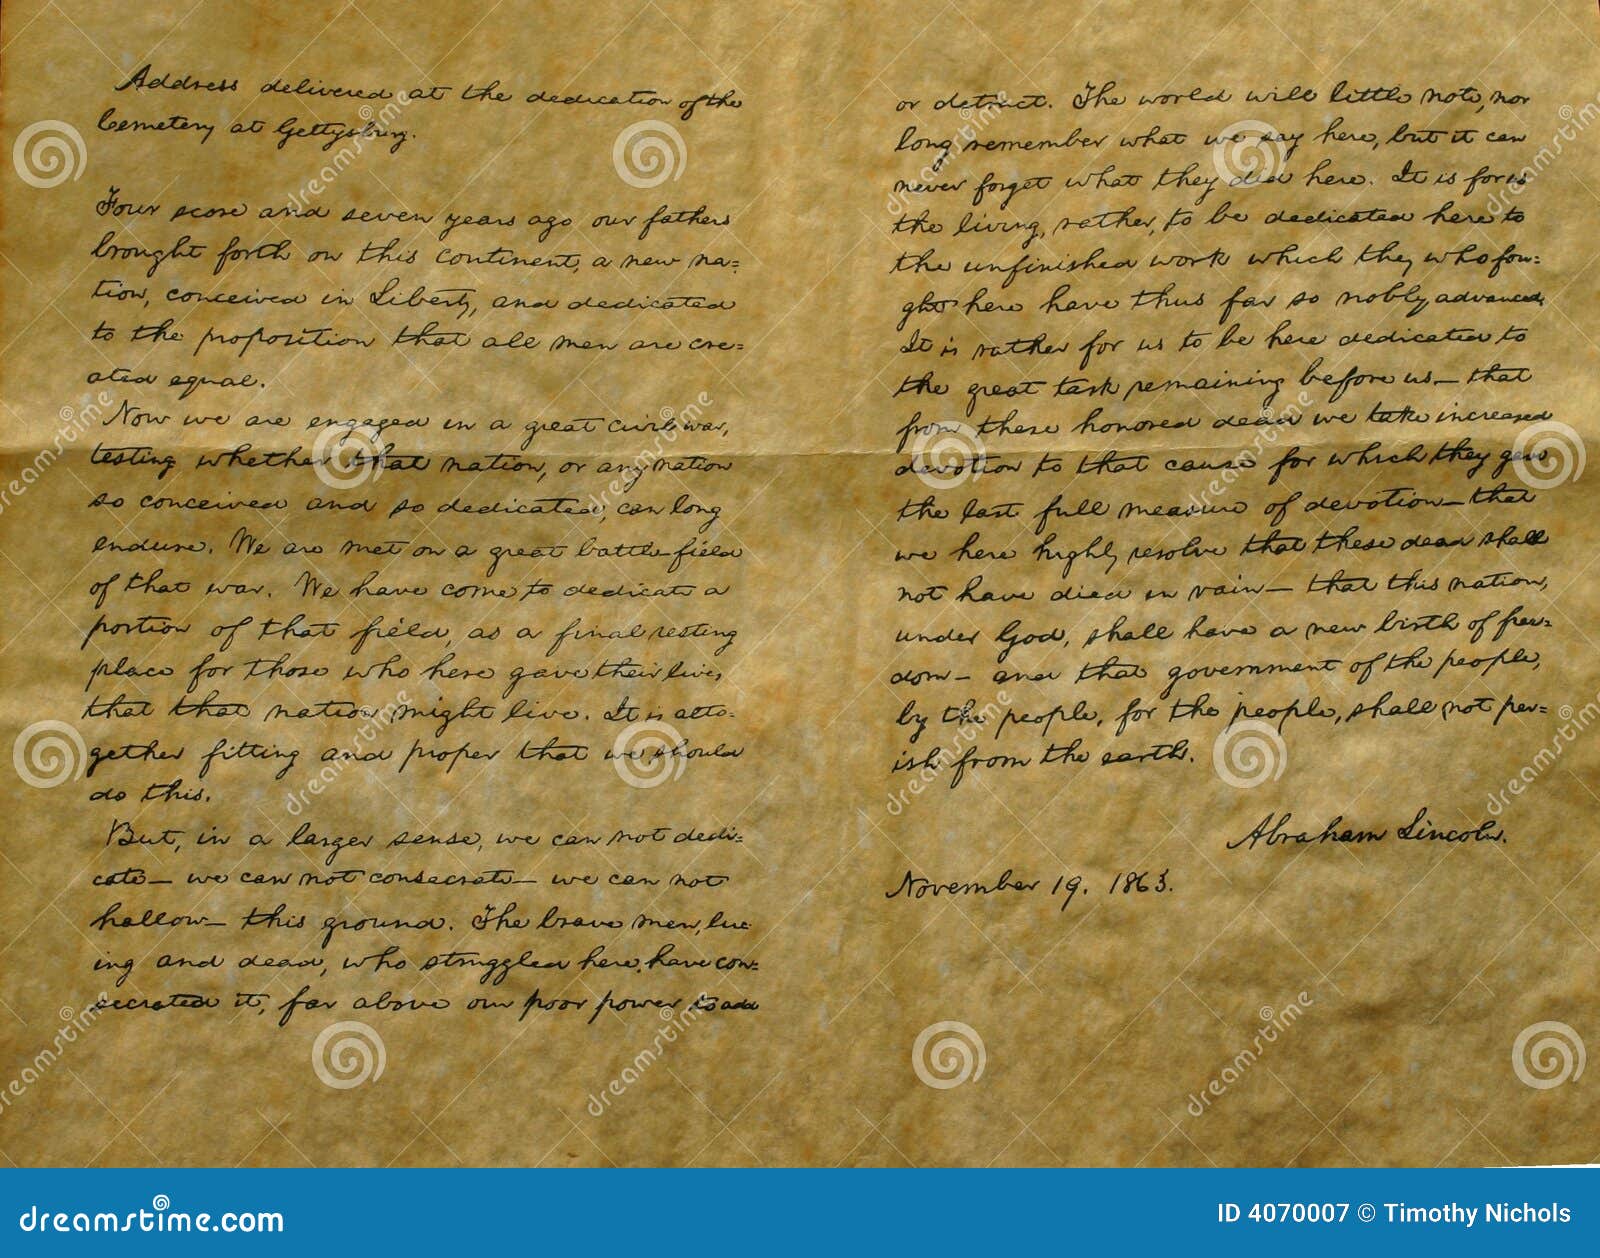 Address delivered at the dedication of the
Cemetery at Gettysburg.
Four score and seven years ago our fathers
brought forth on this continent, a new na=
tion, conceived in Liberty, and dedicated
to the proposition that all men are cre=
ated equal.
Now we are engaged in a great civil war,
testing whether that nation, or any nation
so conceived and so dedicated, can long
endure. We are met on a great battle-field
of that war. We have come to dedicate a
portion of that field, as a final resting
place for those who here gave their lives
that that nation might live. It is alto=
gether fitting and proper that we should
do this.
But, in a larger sense, we can not dedi=
cate— we can not consecrate— we can not
hallow— this ground. The brave men, liv
ing and dead, who struggled here, have con=
secrated it, far above our poor power to add
or detract. The world will little note, nor
long remember what we say here, but it can
never forget what they did here. It is for us
the living, rather, to be dedicated here to
the unfinished work which they who fou=
ght here have thus far so nobly advanced.
It is rather for us to be here dedicated to
the great task remaining before us— that
from these honored dead we take increased
devotion to that cause for which they gave
the last full measure of devotion— that
we here highly resolve that these dead shall
not have died in vain— that this nation,
under God, shall have a new birth of free=
dom— and that government of the people,
by the people, for the people, shall not per=
ish from the earth.
Abraham Lincoln.
November 19. 1863.
dreamstime.com
ID 4070007 © Timothy Nichols